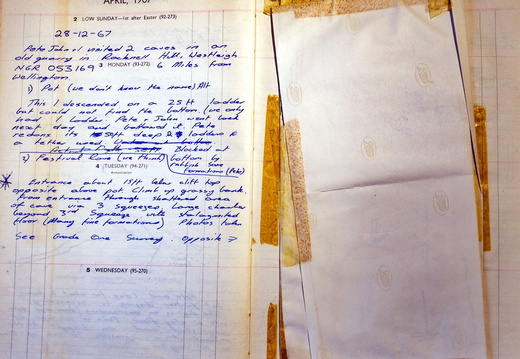 APRIL, 1967
2 LOW SUNDAY—1st after Easter (92-273)
28-12-67
Pete John & I visited 2 caves in an
old quarry in Rocknell Hill, Westleigh
NGR 053169 6 Miles from
3 MONDAY (93-272)
Wellington.
1) Pot (we don't know the name) Alt
This I descended on a 25ft ladder
but could not find the bottom. (we only
had 1 ladder Pete & John went back
next day and bottomed it. Pete
reckons its 50ft deep 2 ladders &
a tether used
Blocked at
bottom by
rubbish some
formations (Pete)
2) Festival Cave (we think)
4 (TUESDAY (94-271)
Annunciation
Entrance about 15ft below cliff top
opposite above pot. Climb up grassy bank
from entrance through shattered area
of cave via 3 squeezes. Large chamber
beyond 3rd Squeeze with stalagmited
floor (Many fine formations) Photos taken
See Grade One Survey. Opposite →
5 WEDNESDAY (95-270)